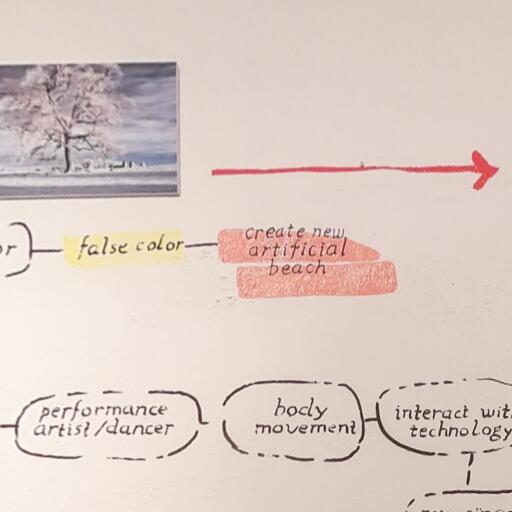 or
false color
create new
artificial
beach
performance
artist/dancer
body
movement
interact with
technology